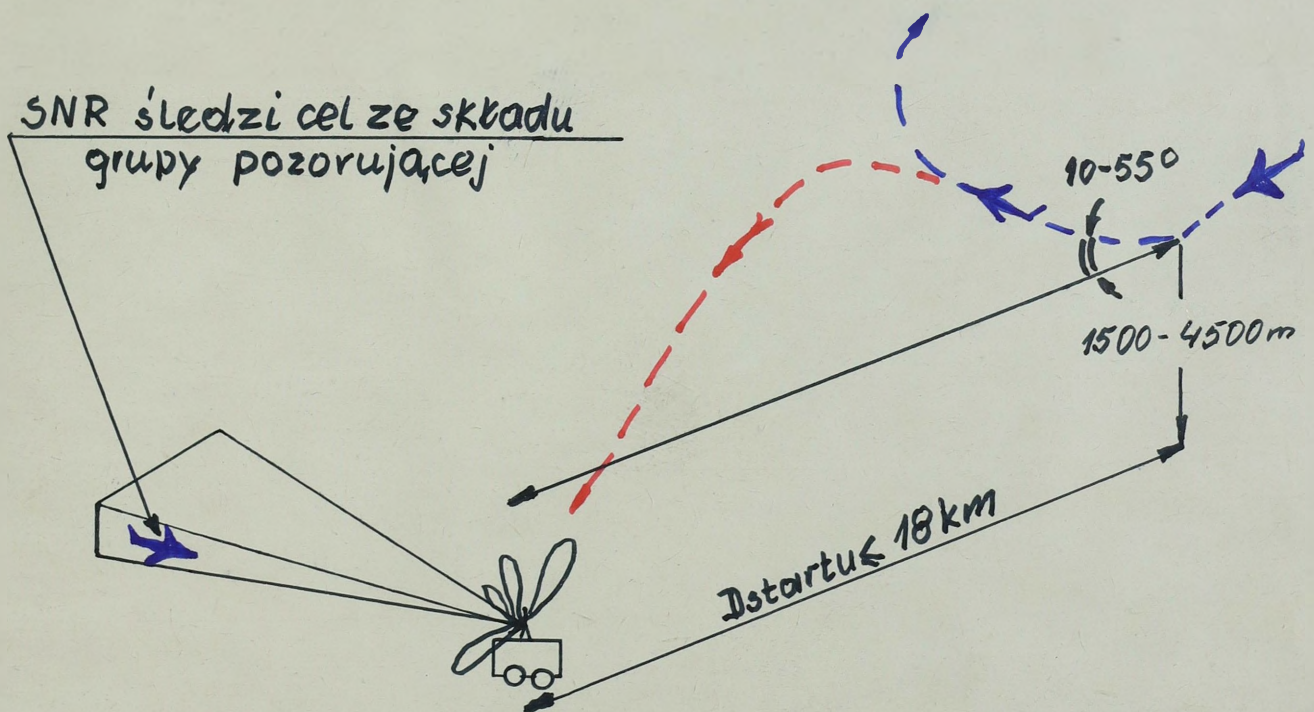 SNR śledzi cel ze składu
grupy pozorującej
10-55°
1500-4500m
Dstartu ≤ 18km